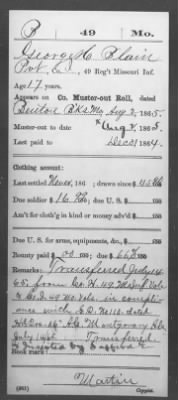 B 49 Mo.
George H. Blain
Pvt, Co. , 49 Reg't Missouri Inf.
Age 17 years.
Appears on Co. Muster-out Roll, dated
Benton Bks Mo Aug 2, 1865.
Muster-out to date Aug 2, 1865.
Last paid to Dec 31, 1864.
Clothing account:
Last settled Never, 186 ; drawn since $
Due soldier $ ; due U. S. $
Am't for cloth'g in kind or money adv'd $
Due U. S. for arms, equipments, &c., $
Bounty paid $ ; due $
Remarks: Transferred July 14
65 from Co. H. 49 Mo Inf Vols
to Co. 49 Mo. Vols. in compli
ance with No. 110. dated
Montgomery Ala
July 1865. Transferred
Book mark:
Martin
(861) Copyist.